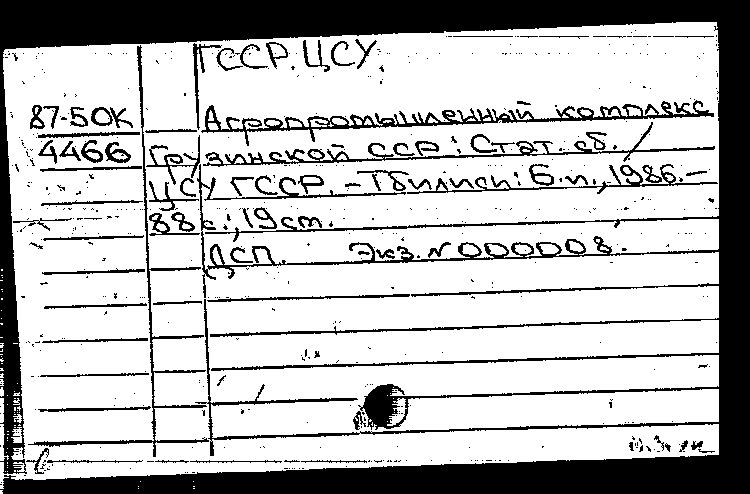 ГССР. ЦСУ.
87-5ОК Агропромышленный комплекс
4466 Грузинской ССР : Стат. сб. /
ЦСУ ГССР. - Тбилиси : Б.и., 1986. -
88 с. ; 19 см.
ДСП. Экз. N 0000008.